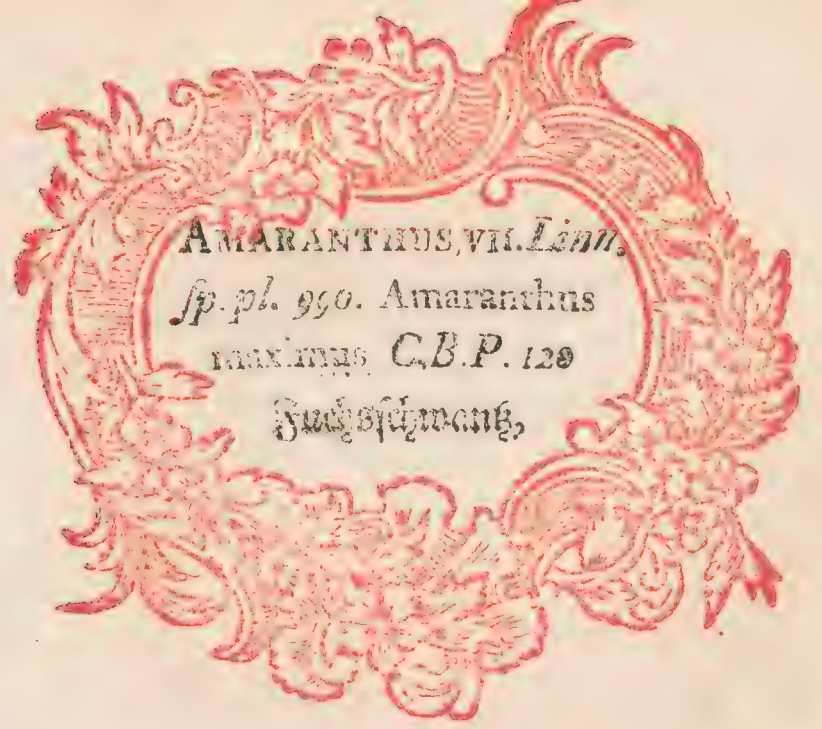 AMARANTHUS, VII. Linn.
ſp. pl. 990. Amaranthus
maximus C.B.P. 120
Fuchsſchwantz,